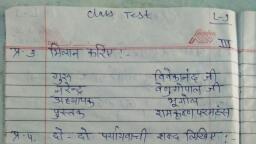 class Test
प्र-3 मिलान करिए!-
गुरु विवेकानंद जी
नरेन्द्र वेणुगोपाल जी
अध्यापक भूगोल
पुस्तक रामकृष्ण परमहंस
प्र-4. दो-दो पर्यायवाची शब्द लिखिए:-